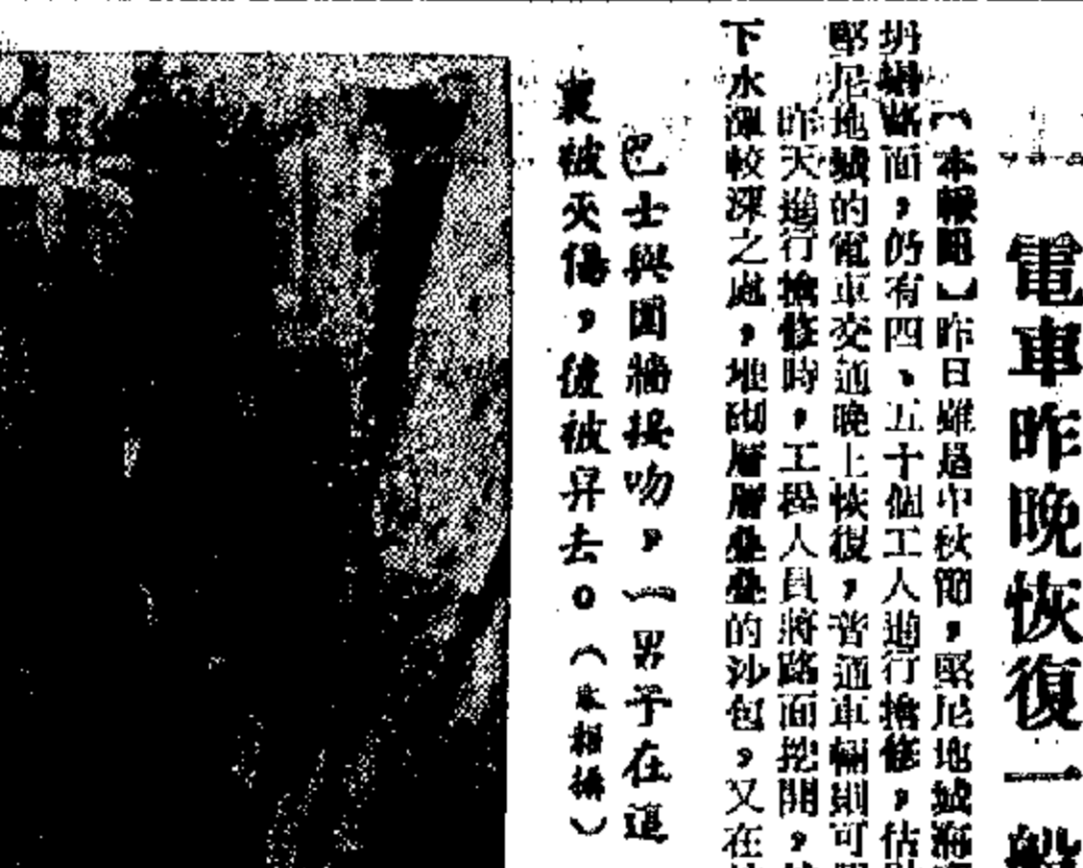 電車昨晚恢復一般
【本報訊】昨日雖是中秋節,堅尼地城海
坍塌路面,仍有四、五十個工人進行搶修,估
堅尼地城的電車交通晚上恢復,普通車輛則可
昨天進行搶修時,工程人員將路面挖開,
下水渠較深之處,地面層層疊疊的沙包,又在
巴士與圍牆接吻,一男子在這
裏被夾傷,後被舁去。(本報攝)